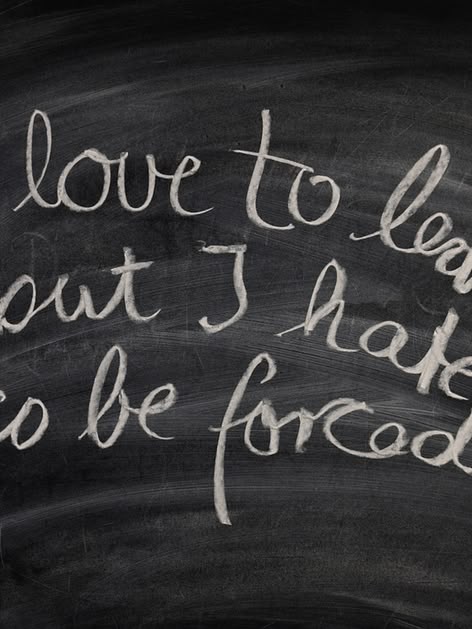 love to lea
out I hate
to be forced